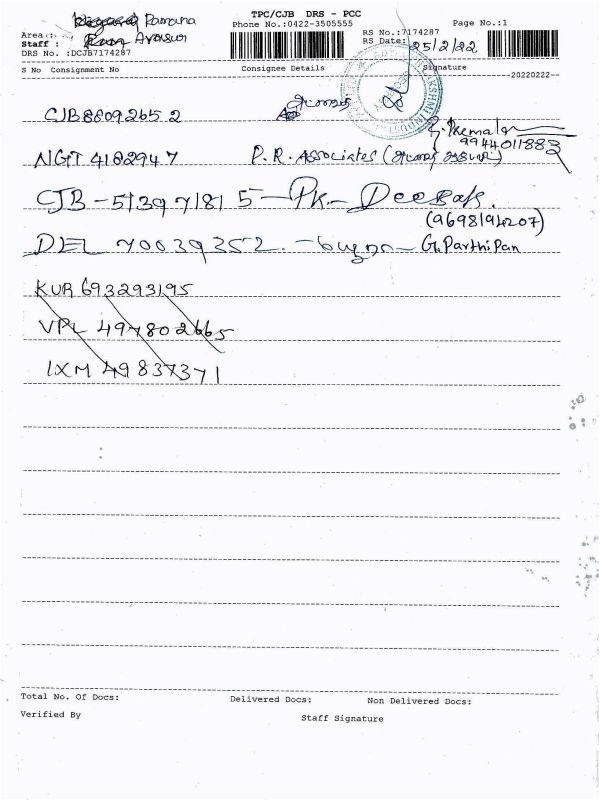 TPC/CJB DRS - PCC
Phone No.:0422-3505555
Page No.:1
Pamana
Area :
RS No.:7174287
Staff : Arasur
RS Date: 25/2/22
DRS No. :DCJB7174287
S No Consignment No Consignee Details Signature
--20220222--
CJB 8809265 2
NGT 4182947 P. R. Associates
9944011883
CJB - 5139718 15 - PK - Deepak.
(9698194207)
DEL 70039352. - G. Parthipan
KUR 693293195
VPL 497802665
IXM 49837371
Total No. Of Docs: Delivered Docs: Non Delivered Docs:
Verified By Staff Signature